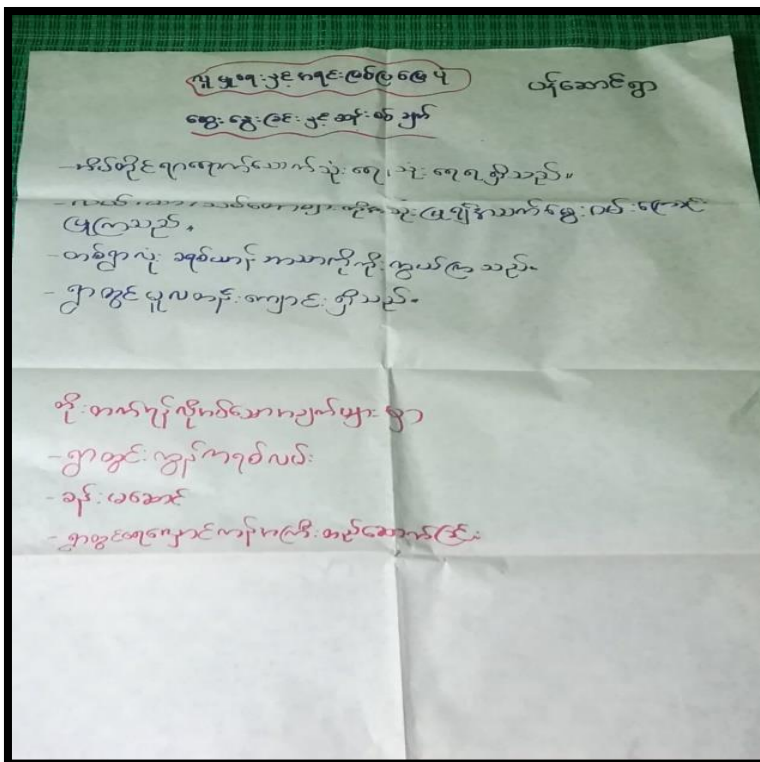 လူမှုရေးနှင့်အရင်းအမြစ်ပြမြေပုံ
ပန်ဆောင်ရွာ
ဆွေးနွေးခြင်းနှင့်ဆန်းစစ်ချက်
- အိမ်တိုင်ရာရောက်သောက်သုံးရေ၊ သုံးရေရရှိသည်။
- လယ်ယာ၊ သစ်တောများကိုအသုံးပြု၍အသက်မွေးဝမ်းကြောင်း
ပြုကြသည်။
- တစ်ရွာလုံး ခရစ်ယာန်ဘာသာကိုကိုးကွယ်ကြသည်။
- ရွာတွင်မူလတန်းကျောင်းရှိသည်။
တိုးတက်ရန်လိုအပ်သောအချက်များမှာ
- ရွာတွင်းကွန်ကရစ်လမ်း
- ခန်းမဆောင်
- ရွာတွင်ရေလှောင်ကန်အကြီးတည်ဆောက်ခြင်း